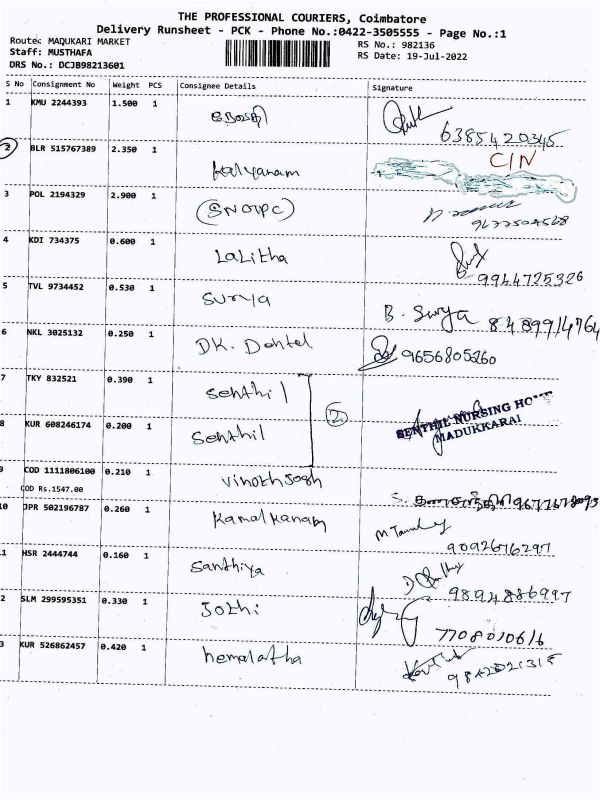 THE PROFESSIONAL COURIERS, Coimbatore
Delivery Runsheet - PCK - Phone No.:0422-3505555 - Page No.:1
Route: MAQUKARI MARKET RS No.: 982136
Staff: MUSTHAFA RS Date: 19-Jul-2022
DRS No.: DCJB98213601
S No Consignment No Weight PCS Consignee Details Signature
1 KMU 2244393 1.500 1 6385420345
2 BLR 515767389 2.350 1 Kalyanam C/N
3 POL 2194329 2.900 1
4 KDI 734375 0.600 1 Lalitha 9944725326
5 TVL 9734452 0.530 1 Surya B. Surya 8489914764
6 NKL 3025132 0.250 1 DK. Dental 9656805260
7 TKY 832521 0.390 1 Senthil
2
8 KUR 608246174 0.200 1 Senthil SENTHIL NURSING HO
MADUKKARAI
9 COD 1111806100 0.210 1 Vinothjosh
COD Rs.1547.00
10 JPR 502196787 0.260 1 9092676297
1 HSR 2444744 0.160 1 Santhiya 9894886997
2 SLM 299595351 0.330 1 Jothi 7708010616
3 KUR 526862457 0.420 1 hemalatha